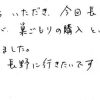 いただき、今回長
が巣ごもりの購入と
ました。
長野に行きたいです